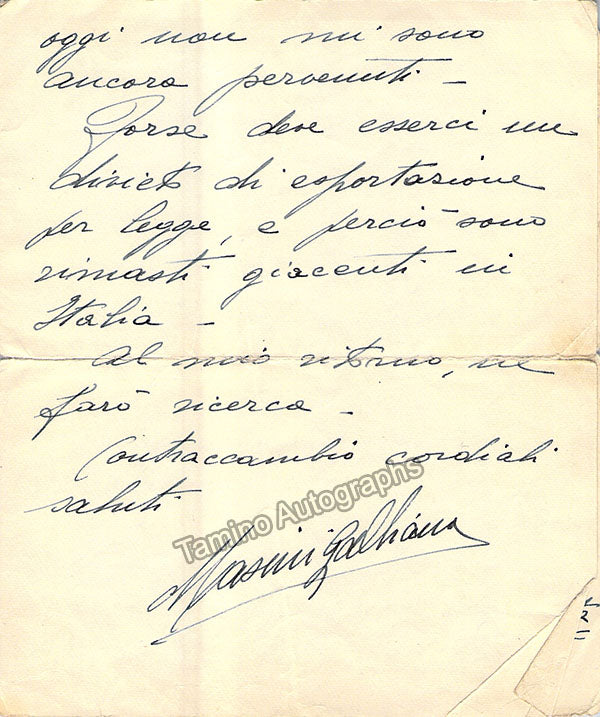 oggi non mi sono
ancora pervenuti –
Forse deve esserci un
divieto di esportazione
per legge, e perciò sono
rimasti giacenti in
Italia –
Al mio ritorno, ne
farò ricerca –
Contraccambio cordiali
saluti
Tamino Autographs
Masini Galliano
2